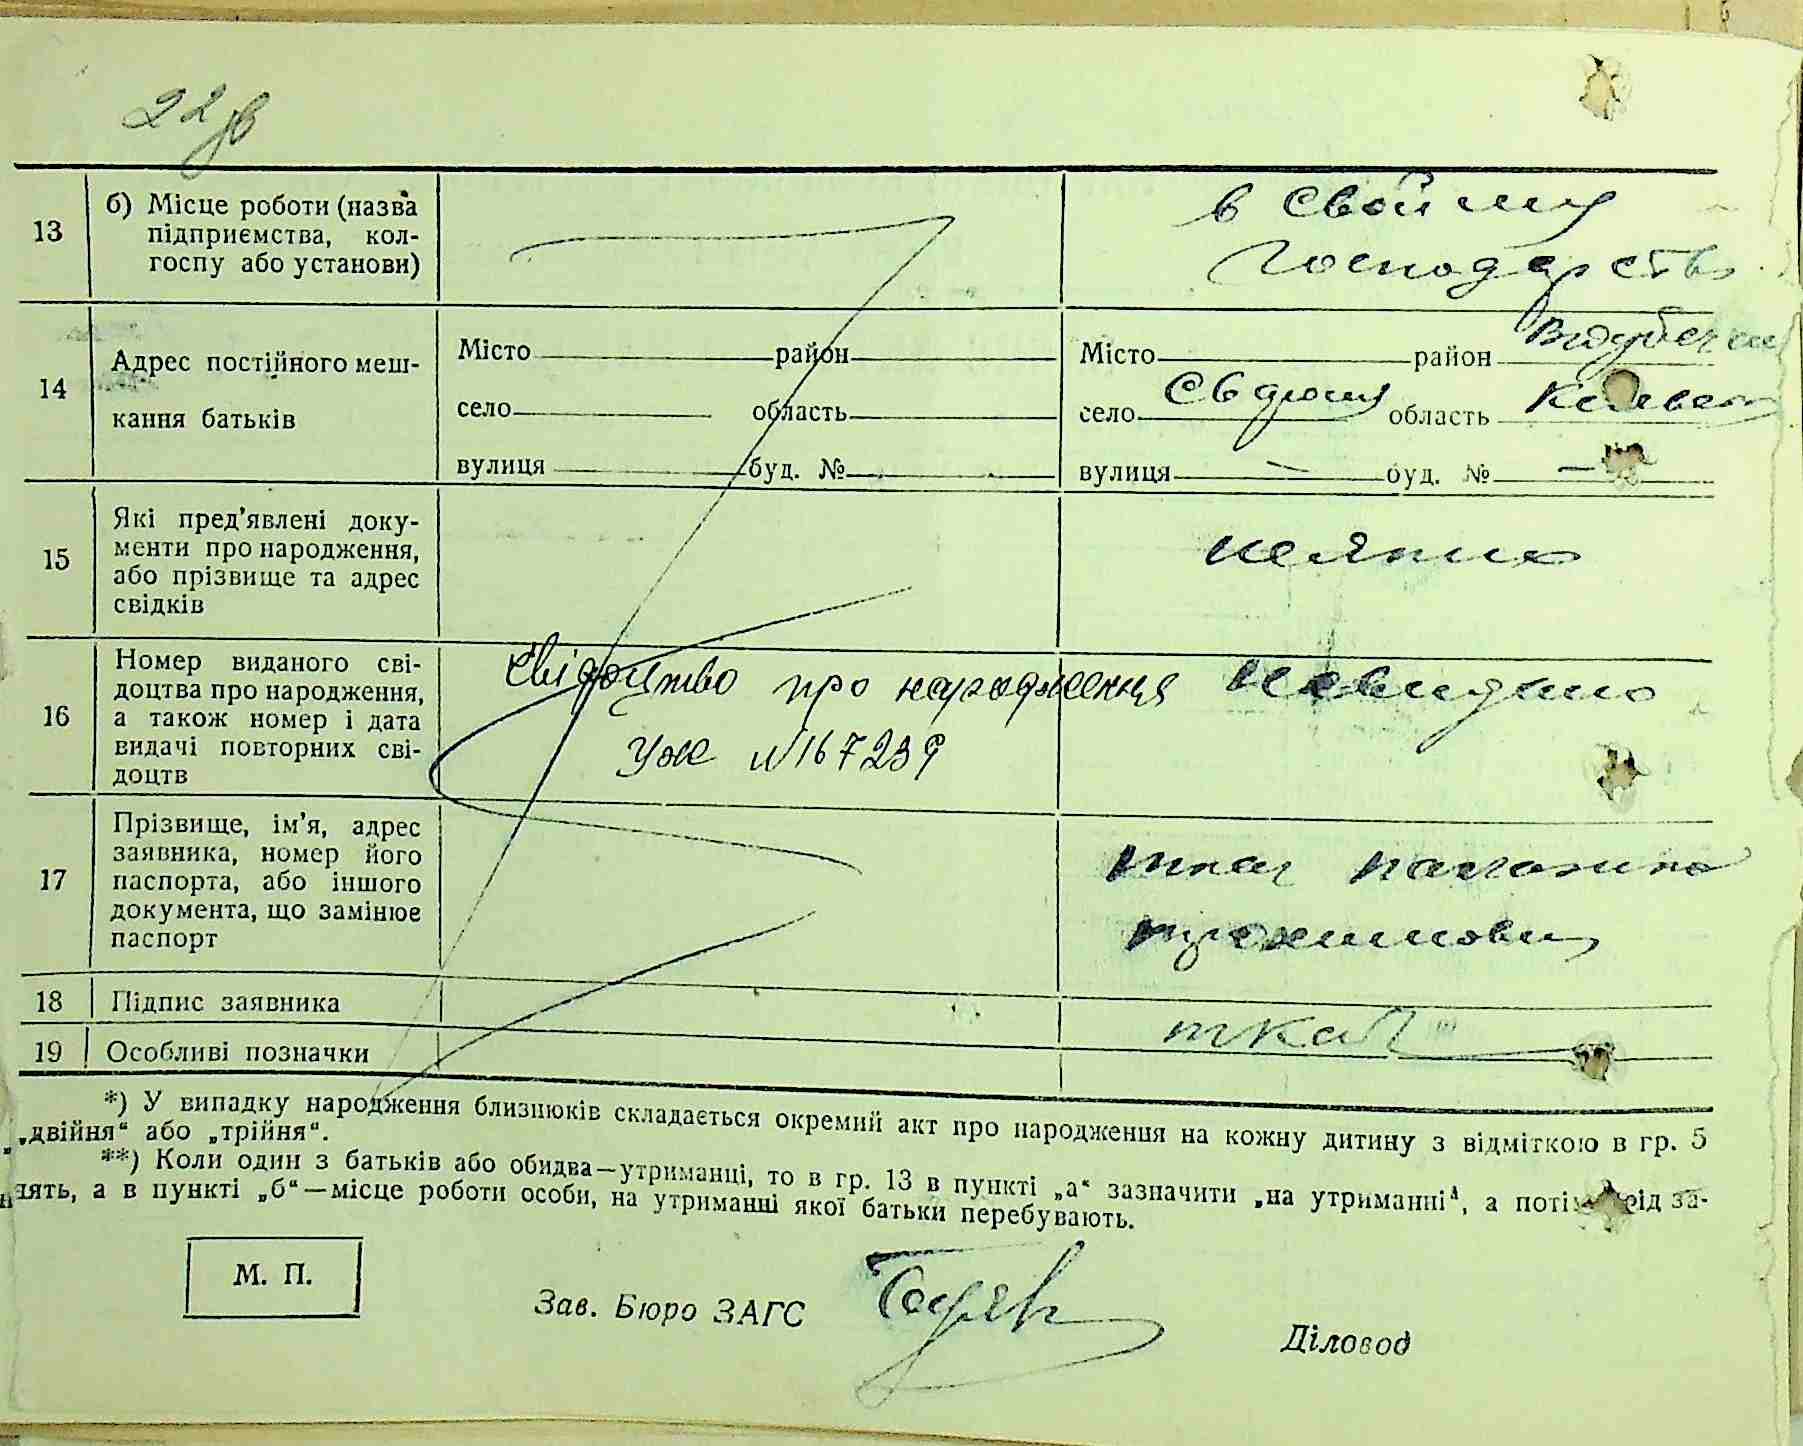 22
13
б) Місце роботи (назва
підприємства, кол-
госпу або установи)
в свойму
господарстві
14
Адрес постійного меш-
кання батьків
Місто район
село область
вулиця буд. №
Місто район
село область
вулиця — буд. № —
15
Які пред'явлені доку-
менти про народження,
або прізвище та адрес
свідків
неяких
16
Номер виданого сві-
доцтва про народження,
а також номер і дата
видачі повторних сві-
доцтв
Свідоцтво про народження
УЖ №167239
невидано
17
Прізвище, ім'я, адрес
заявника, номер його
паспорта, або іншого
документа, що замінює
паспорт
ткач
18
Підпис заявника
ткач
19
Особливі позначки
*) У випадку народження близнюків складається окремий акт про народження на кожну дитину з відміткою в гр. 5
„двійня“ або „трійня“.
**) Коли один з батьків або обидва—утриманці, то в гр. 13 в пункті „а“ зазначити „на утриманні“, а потім рід за-
нять, а в пункті „б“—місце роботи особи, на утриманні якої батьки перебувають.
М. П.
Зав. Бюро ЗАГС
Діловод